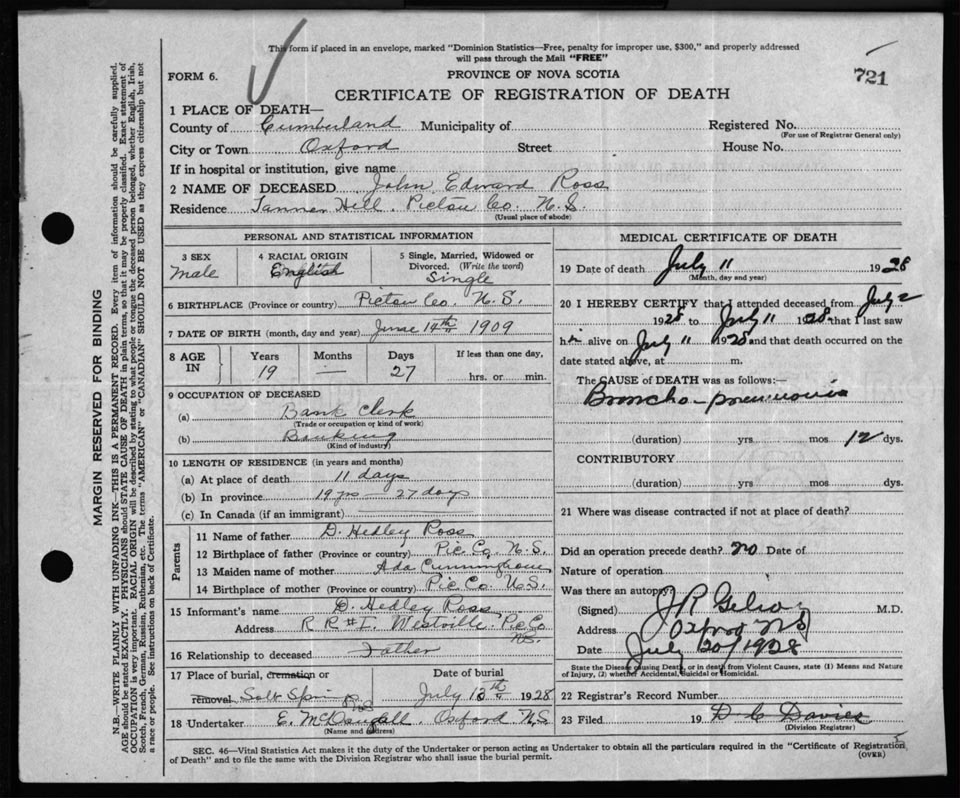 This form if placed in an envelope, marked "Dominion Statistics—Free, penalty for improper use, $300," and properly addressed
will pass through the Mail "FREE"
721
FORM 6.
PROVINCE OF NOVA SCOTIA
CERTIFICATE OF REGISTRATION OF DEATH
1 PLACE OF DEATH—
County of Cumberland Municipality of Registered No.
(For use of Registrar General only)
City or Town Oxford Street House No.
If in hospital or institution, give name
2 NAME OF DECEASED John Edward Ross
Residence Tanner Hill, Pictou Co. N.S.
(Usual place of abode)
PERSONAL AND STATISTICAL INFORMATION
3 SEX
Male
4 RACIAL ORIGIN
English
5 Single, Married, Widowed or
Divorced. (Write the word)
Single
6 BIRTHPLACE (Province or country) Pictou Co. N.S.
7 DATE OF BIRTH (month, day and year) June 14th 1909
8 AGE IN
Years 19
Months —
Days 27
If less than one day,
hrs. or min.
9 OCCUPATION OF DECEASED
(a) Bank Clerk
(Trade or occupation or kind of work)
(b) Banking
(Kind of industry)
10 LENGTH OF RESIDENCE (in years and months)
(a) At place of death 11 days
(b) In province 19 yrs — 27 days
(c) In Canada (if an immigrant)
Parents
11 Name of father D. Hedley Ross
12 Birthplace of father (Province or country) Pic. Co. N.S.
13 Maiden name of mother Ada Cunningham
14 Birthplace of mother (Province or country) Pic Co. N.S.
15 Informant's name D. Hedley Ross
Address R R #1. Westville Pic Co
N.S.
16 Relationship to deceased Father
17 Place of burial, cremation or Date of burial
removal Salt Springs July 13th 1928
N.S.
18 Undertaker E. McDougall. Oxford N.S.
(Name and address)
MEDICAL CERTIFICATE OF DEATH
19 Date of death July 11 1928
(Month, day and year)
20 I HEREBY CERTIFY that I attended deceased from July 2
1928 to July 11 1928 that I last saw
him alive on July 11 1928 and that death occurred on the
date stated above, at m.
The CAUSE of DEATH was as follows:—
Broncho-pneumonia
(duration) yrs mos 12 dys.
CONTRIBUTORY
(duration) yrs. mos dys.
21 Where was disease contracted if not at place of death?
Did an operation precede death? no Date of
Nature of operation
Was there an autopsy
(Signed) J R Gilroy M.D.
Address Oxford N.S
Date July 20/1928
State the Disease causing Death, or in death from Violent Causes, state (1) Means and Nature
of Injury, (2) whether Accidental, Suicidal or Homicidal.
22 Registrar's Record Number
23 Filed 19 D C Davies
(Division Registrar)
SEC. 46—Vital Statistics Act makes it the duty of the Undertaker or person acting as Undertaker to obtain all the particulars required in the "Certificate of Registration
of Death" and to file the same with the Division Registrar who shall issue the burial permit. (OVER)
MARGIN RESERVED FOR BINDING
N.B.—WRITE PLAINLY WITH UNFADING INK—THIS IS A PERMANENT RECORD. Every item of information should be carefully supplied.
AGE should be stated EXACTLY. PHYSICIANS should STATE CAUSE OF DEATH in plain terms, so that it may be properly classified. Exact statement of
OCCUPATION is very important. RACIAL ORIGIN will be described by stating to what people or tongue the deceased person belonged, whether English, Irish,
Scotch, French, German, Russian, Ruthenian, etc. The terms "AMERICAN" or "CANADIAN" SHOULD NOT BE USED as they express citizenship but not
a race or people. See instructions on back of Certificate.